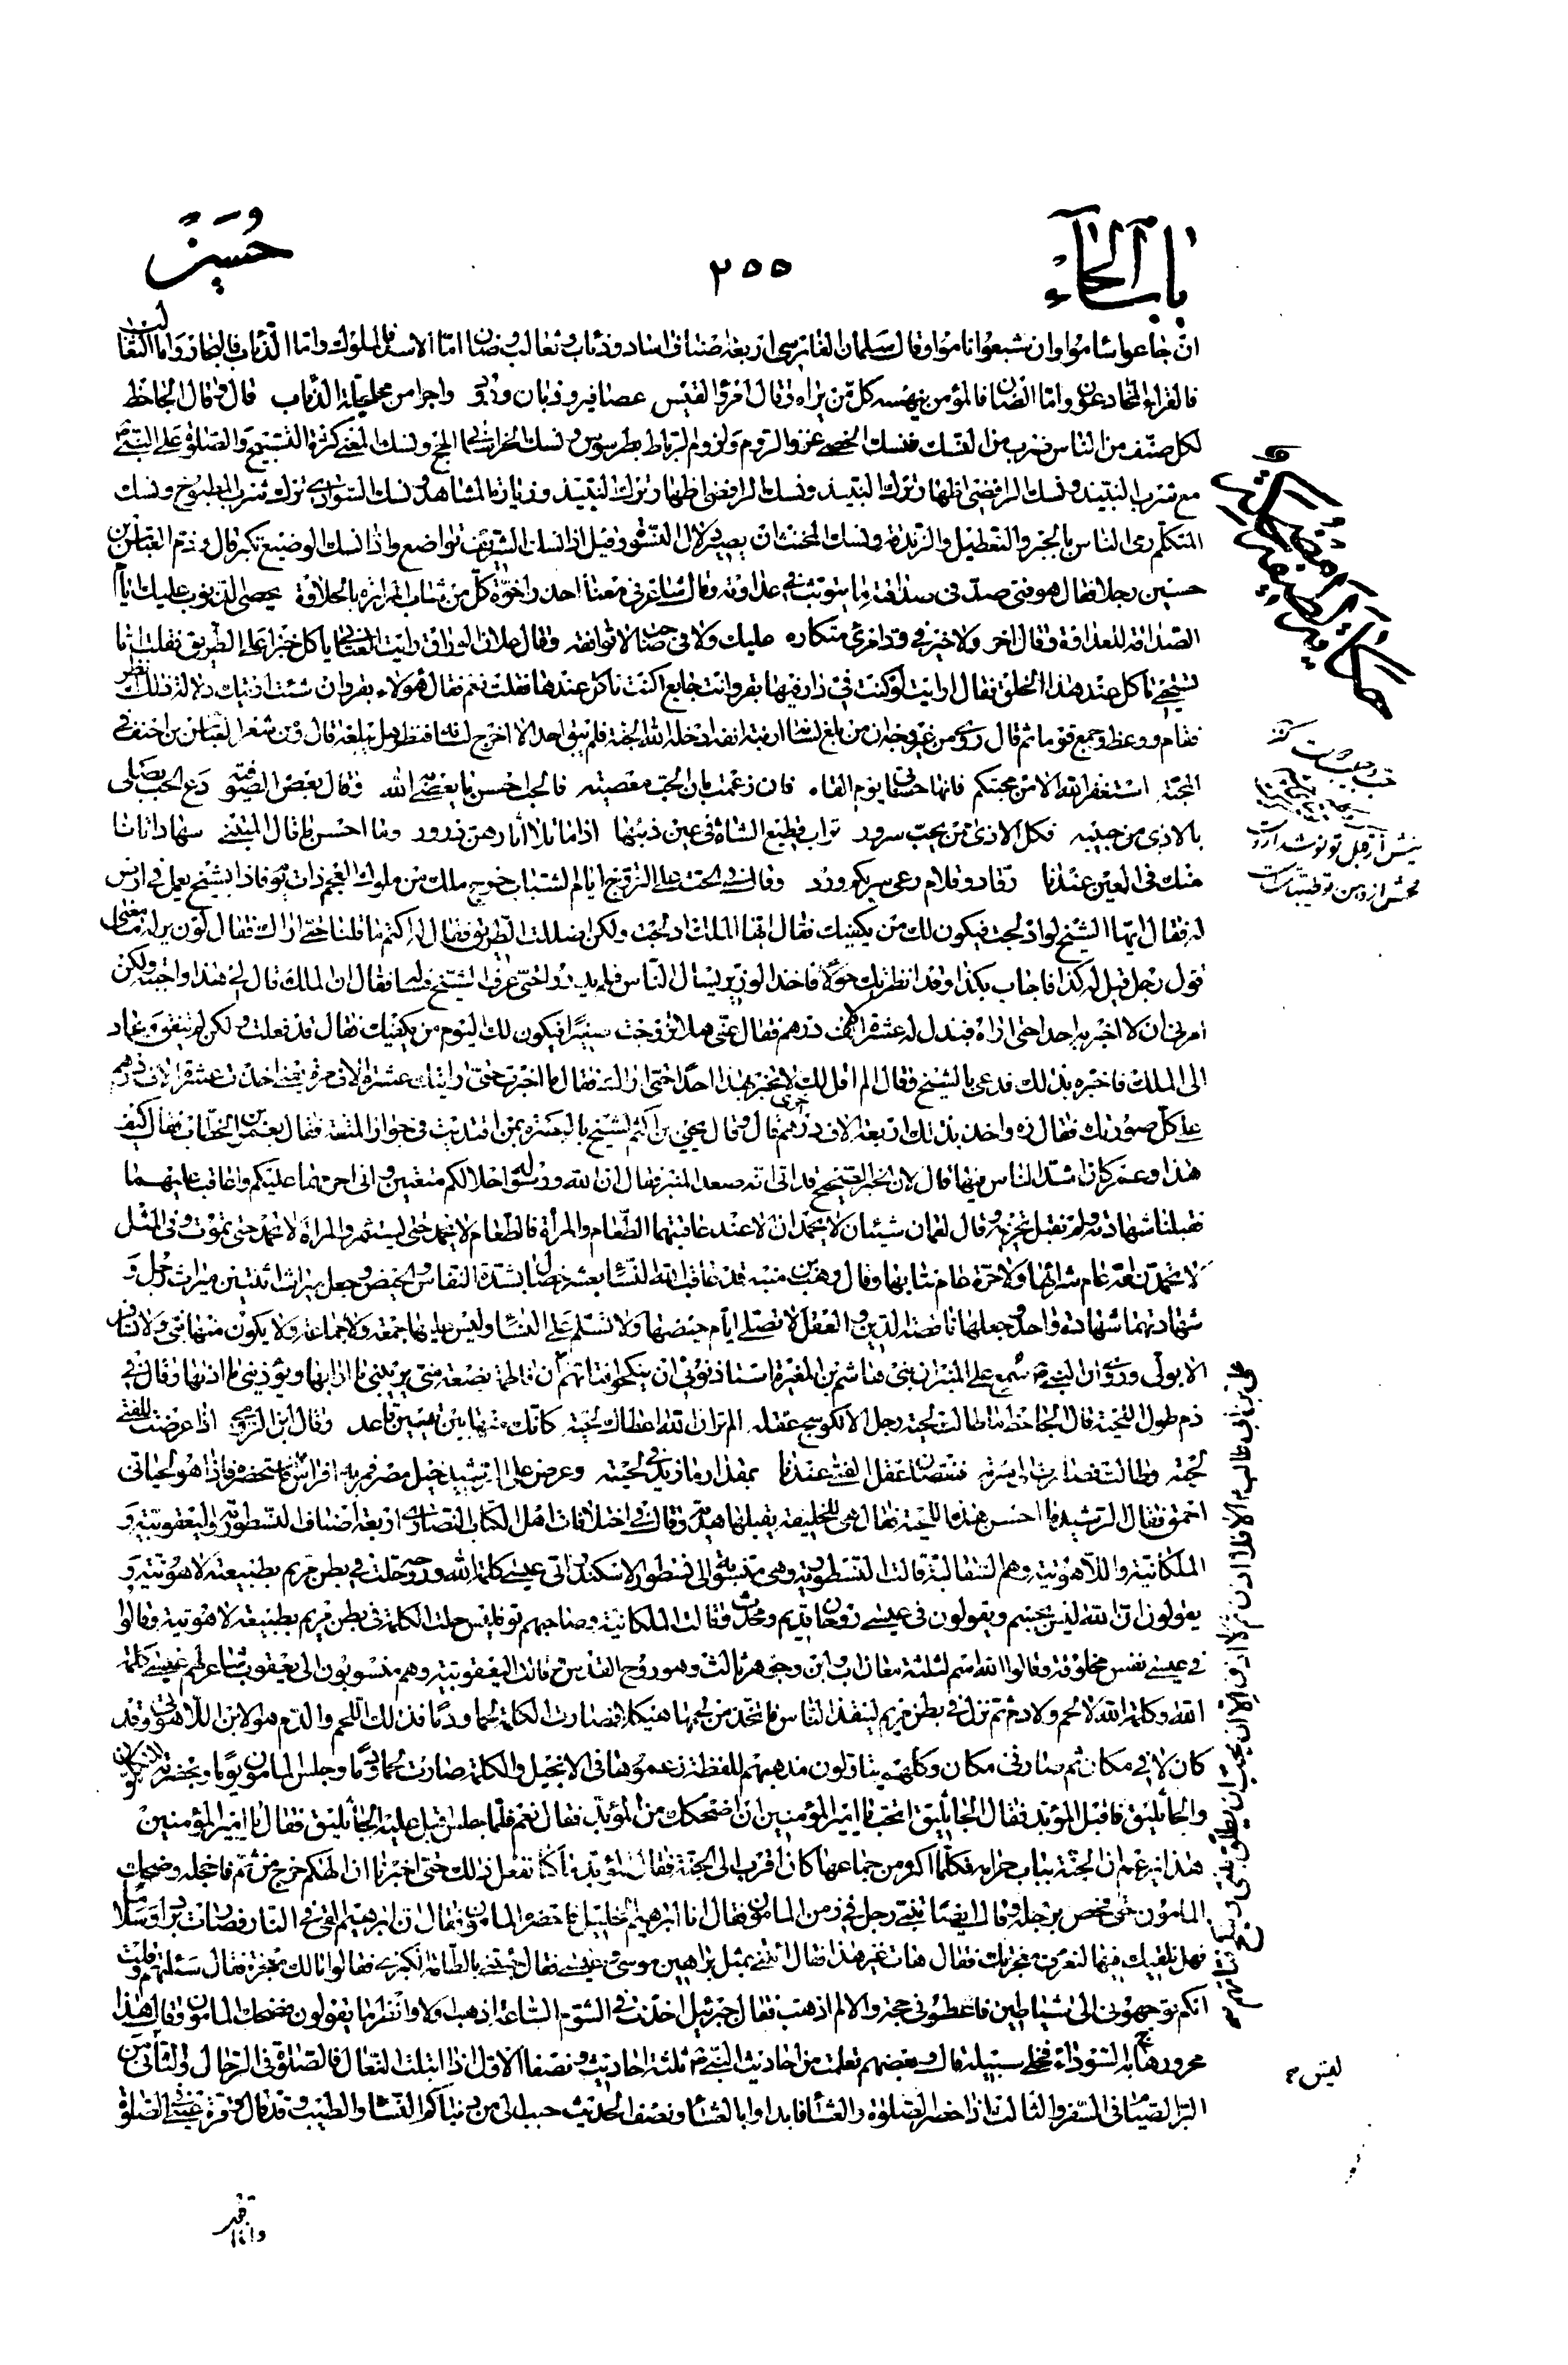 باب الحاء
٢٥٥
حسين
ان جاعوا ساموا وان شبعوا ناموا وقال سلمان الفارسي اربعة اصناف اساد وذئاب وثعالب وضان اما الاسد فالملوك واما الذئاب فالتجار واما الثعالب
فالقراء المخادعون واما الضان فالمؤمن ينهسه كل من يراه وقال امرؤ القيس عصافير وذبان ودود واجرا من مجلحة الذئاب قال وقال الجاحظ
لكل صنف من الناس ضرب من النسك فنسك الخصي غزو الروم ولزوم الرباط بطرسوس ونسك الخراساني الحج ونسك المغني كثرة التسبيح والصلوة على النبي
مع شرب النبيذ ونسك الرافضي اظهار ترك النبيذ ونسك الرافضي اظهار ترك النبيذ وزيارة المشاهد ونسك السوادي ترك شرب المطبوخ ونسك
المتكلم رمى الناس بالجبر والتعطيل والزندقة ونسك المخنث ان يصير دلال الفسق وقيل اذا نسك الشريف تواضع واذا نسك الوضيع تكبر قال وذم العباس بن
حسين رجلا فقال هو فتى صدق في صداقته ما يتوثب في عداوته وقال شاعر في معناه احذر اخوة كل من شاب المرارة بالحلاوة يحصى الذنوب عليك ايام
الصداقة للعداوة وقال اخر ولا خير في ود امرئ متكاره عليك ولا في صاحب لا توافقه وقال علان الوراق رايت العتابي ياكل خبزا على الطريق فقلت اما
تستحي تاكل عند هذا الخلق فقال ارايت لو كنت في دار فيها بقر وانت جايع اكنت تاكل عندها فقلت نعم فقال هؤلاء بقر وان شئت اريتك دلالة ذلك
فقام ووعظ وجمع قوما ثم قال روي من غير وجه ان من بلغ لسانه ارنبة انفه ادخله الله الجنة فلم يبق احد الا اخرج لسانه فنظر هل يبلغه قال ومن شعر العباس بن احنف في
المحبة استغفر الله الا من محبتكم فانها حسناتي يوم القاه فان زعمت بان الحب معصية فالحب احسن ما يعصى به الله وقال بعض الصوفية دع الحب يصلى
بالاذى من حبيبه فكل الاذى ممن يحب سرور تراب قطيع الشاة في عين ذئبها اذا ما تلا اثارهن ذرور وما احسن ما قال المتنبي سهاد اتانا
منك في العين عندنا رقاد وقلام رعى سربكم ورد وقال في الحث على التزوج ايام الشباب خرج ملك من ملوك العجم ذات يوم فاذا بشيخ يعمل في ارض
له فقال ايها الشيخ لو ادلجت فيكون لك من يكفيك فقال ايها الملك ادلجت ولكن اضللت الطريق فقال له اكتم ما قلنا حتى اراك فقال لوزيره ما معنى
قول رجل قيل له كذا فاجاب بكذا وقد انظرتك حولا فاخذ الوزير يسال الناس فلم يدر واحتى عرف الشيخ فساله فقال ان الملك قال لي هذا واجبته ولكن
امرني ان لا اخبر به احدا حتى اراه فبذل له عشرة الف درهم فقال عنى هلا تزوجت صغيرا فيكون لك اليوم من يكفيك فقال قد فعلت ولكن لم يتفق وعاد
الى الملك فاخبره بذلك فدعى بالشيخ وقال الم اقل لك لا تخبر بهذا احدا حتى اراك فقال ما اخبرت حتى رايتك عشرة الاف مرة يعني اخذت عشرة الاف درهم
على كل صورتك فقال زه واخذ بذلك اربعة الاف درهم اخرى قال وقال يحيى بن اكثم لشيخ بالبصرة بمن اقتديت في جواز المتعة فقال بعمر بن الخطاب فقال كيف
هذا وعمر كان اشد الناس فيها قال لان الخبر الصحيح قد اتى انه صعد المنبر فقال ان الله ورسوله احلا لكم متعتين واني احرمهما عليكم واعاقب عليهما
فقبلنا شهادته ولم نقبل تحريمه وقال لقمان شيئان لا يحمدان الا عند عاقبتهما الطعام والمرأة فالطعام لا يحمد حتى يستمرء والمراة لا تحمد حتى تموت وفي المثل
لا تحمدن امة عام شرائها ولا حرة عام بنائها وقال وهب بن منبه قد عاقب الله النساء بعشر خصال بشدة النفاس والحيض وجعل ميراث اثنتين ميراث رجل و
شهادتهما شهادة واحد وجعلها ناقصة الدين والعقل لا تصلي ايام حيضها ولا تسلم على النساء وليس عليها جمعة ولا جماعة ولا يكون منها نبي ولا تسافر
الا بولي وروي ان النبي سمع على المنبر ان بني هاشم بن المغيرة استاذنوني ان ينكحوا فتاتهم ان فاطمة بضعة مني يريبني ما ارابها ويؤذيني ما اذاها وقال في
ذم طول اللحية قال الجاحظ ما طالت لحية رجل الا تكوسج عقله الم تر ان الله اعطاك لحية كانك منها بين تيسين قاعد وقال ابن الرومي اذا عرضت للفتى
لحية وطالت فصارت الى سرته فنقصان عقل الفتى عندنا بمقدار ما زيد في لحيته وعرض على الرشيد خيل مصر فمر به افراس فاستحضره فاذا هو لحياني
احمق فقال الرشيد ما احسن هذه اللحية فقال هي للخليفة يقبلها هدية وقال في اختلافات اهل الكتاب النصارى اربعة اصناف النسطورية واليعقوبية و
الملكانية واللاهوتية وهم السقالبة قالت النسطورية وهي منسوبة الى نسطور الاسكندراني عيسى كلمة الله وروحه حلت في بطن مريم بطبيعة لاهوتية و
يقولون ان الله ليس بجسم ويقولون في عيسى روحان قديم ومحدث وقالت الملكانية وصاحبهم توفليس حلت الكلمة في بطن مريم بطبيعة لاهوتية وقالوا
في عيسى نفس مخلوقة وقالوا الله اسم لثلثة معان اب وابن وجوهر ثالث وهو روح القدس وقالت اليعقوبية وهم منسوبون الى يعقوب شاعرهم عيسى كلمة
الله وكلمة الله لا لحم ولا دم ثم نزل في بطن مريم لينقذ الناس فاتخذ من لحمها هيكلا فصارت الكلمة لحما ودما فذلك اللحم والدم هو الابن اللاهوتي وقد
كان لا في مكان ثم صار في مكان وكلهم يتاولون مذهبهم للفظة زعموها في الانجيل والكلمة صارت لحما ودما وجلس المامون يوما وبحضرته المتكلمون
والجاثليق فاقبل المؤبد فقال الجاثليق اتحب يا امير المؤمنين ان اضحكك من المؤبد فقال نعم فلما جلس اقبل عليه الجاثليق فقال يا امير المؤمنين
هذا يزعم ان الجنة بباب حر امه فكلما اكثر من جماعها كان اقرب الى الجنة فقال المؤبد ما كنا نفعل ذلك حتى اخبرنا ان الهكم خرج من ثم فاخجله وضحك
المامون حتى فحص برجله وقال ايضا تنبى رجل في زمن المامون فقال انا ابراهيم الخليل فاحضره المامون فقال ان ابرهيم القي في النار فصارت بردا وسلاما
فهل نلقيك فيها لنعرف معجزتك فقال هات غير هذا فقال ائتني بمثل براهين موسى وعيسى فقال جئتني بالطامة الكبرى فقالوا مالك معجزة فقال سئلتهم وقلت
انكم توجهوني الى شياطين فاعطوني حجة والا لم اذهب فقال جبرئيل اخذت في الشؤم الساعة اذهب اولا وانظر ما يقولون فضحك المامون وقال هذا
محرور هاج به السوداء فخلى سبيله قال وبعضهم تعلمت من احاديث النبي ثلثة احاديث ونصفا الاول اذا ابتلت النعال فالصلوة في الرحال والثاني من
البر الصيام في السفر والثالث اذا حضر الصلوة والعشاء فابداوا بالعشاء ونصف الحديث حبب الى من دنياكم النساء والطيب وقد قال قرة عيني الصلوة
ليس
علي بن ابي طالب الا فلا اذن ثم لا اذن الا ان يحب ان يطلق بنتي وينكح ابنتهم